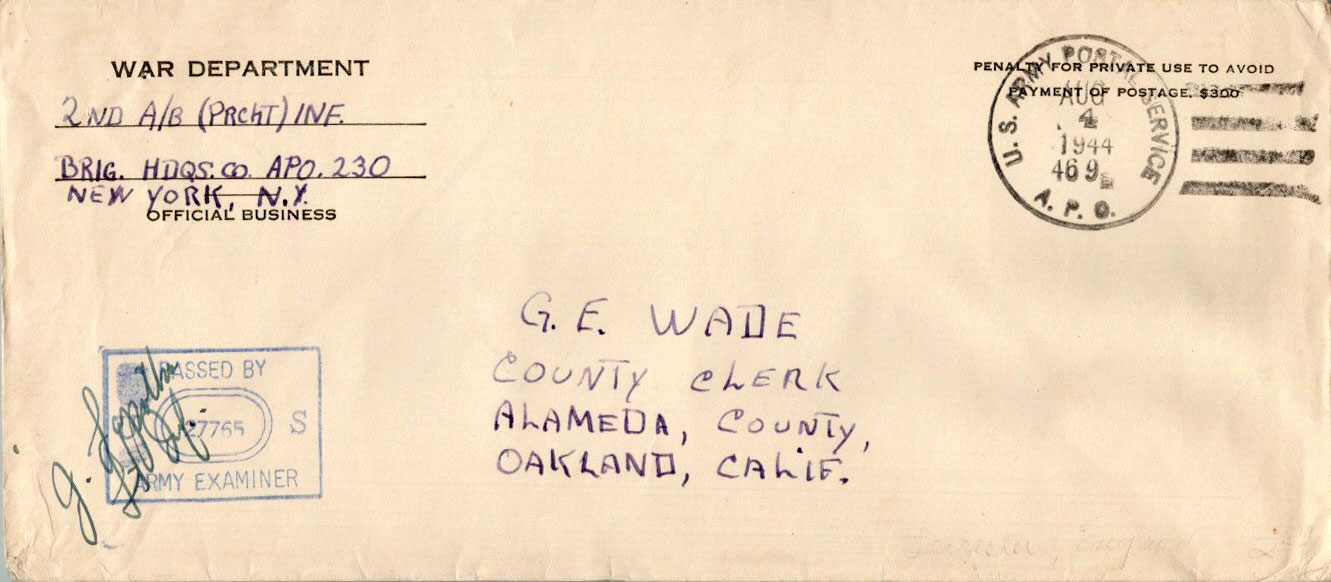 WAR DEPARTMENT
2ND A/B (PRCHT) INF.
BRIG. HDQS. CO. APO. 230
NEW YORK, N.Y.
OFFICIAL BUSINESS
PENALTY FOR PRIVATE USE TO AVOID
PAYMENT OF POSTAGE, $300
U.S. ARMY POSTAL SERVICE
AUG
4
1944
469
A. P. O.
G. E. WADE
COUNTY CLERK
ALAMEDA, COUNTY,
OAKLAND, CALIF.
PASSED BY
27765
S
ARMY EXAMINER
J.